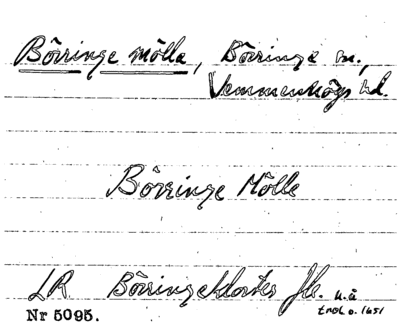 Börringe mölla, Börringe sn.,
Vemmenhögs hd.
Börringe Mölle
LR Börringekloster flk. u.å
trol. o. 1651
Nr 5095.